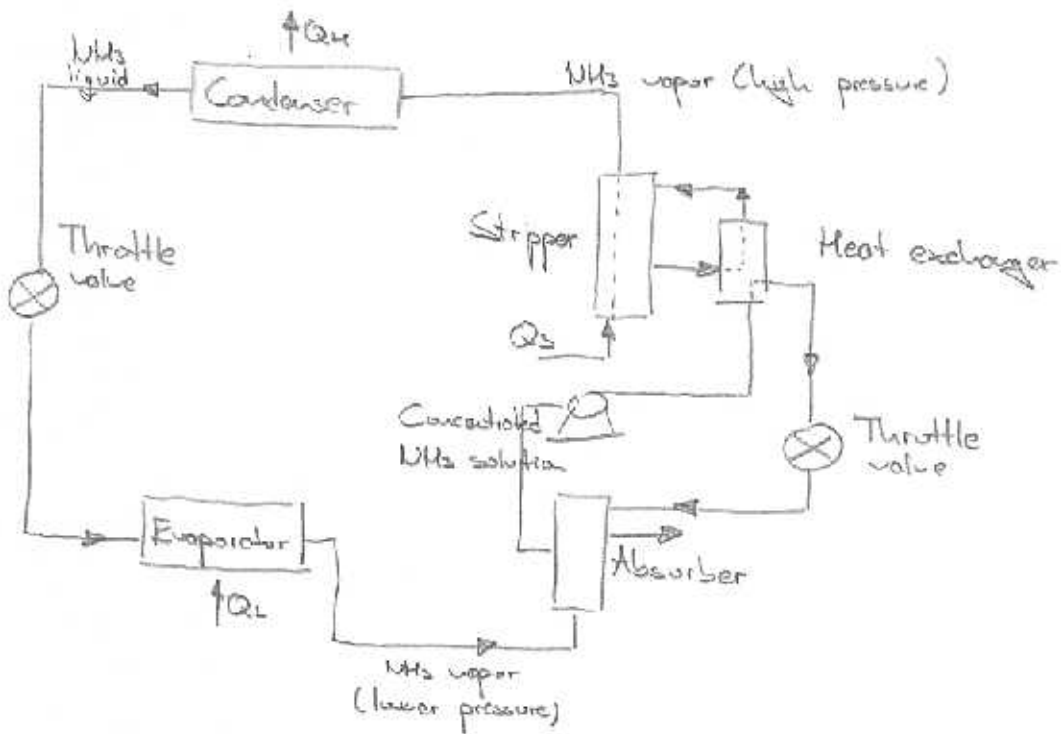 QH
NH3
liquid
Condenser
NH3 vapor (high pressure)
Throttle
value
Stripper
Heat exchanger
Qs
Concentrated
NH3 solution
Throttle
value
Evaporator
QL
Absurber
NH3 vapor
(lower pressure)